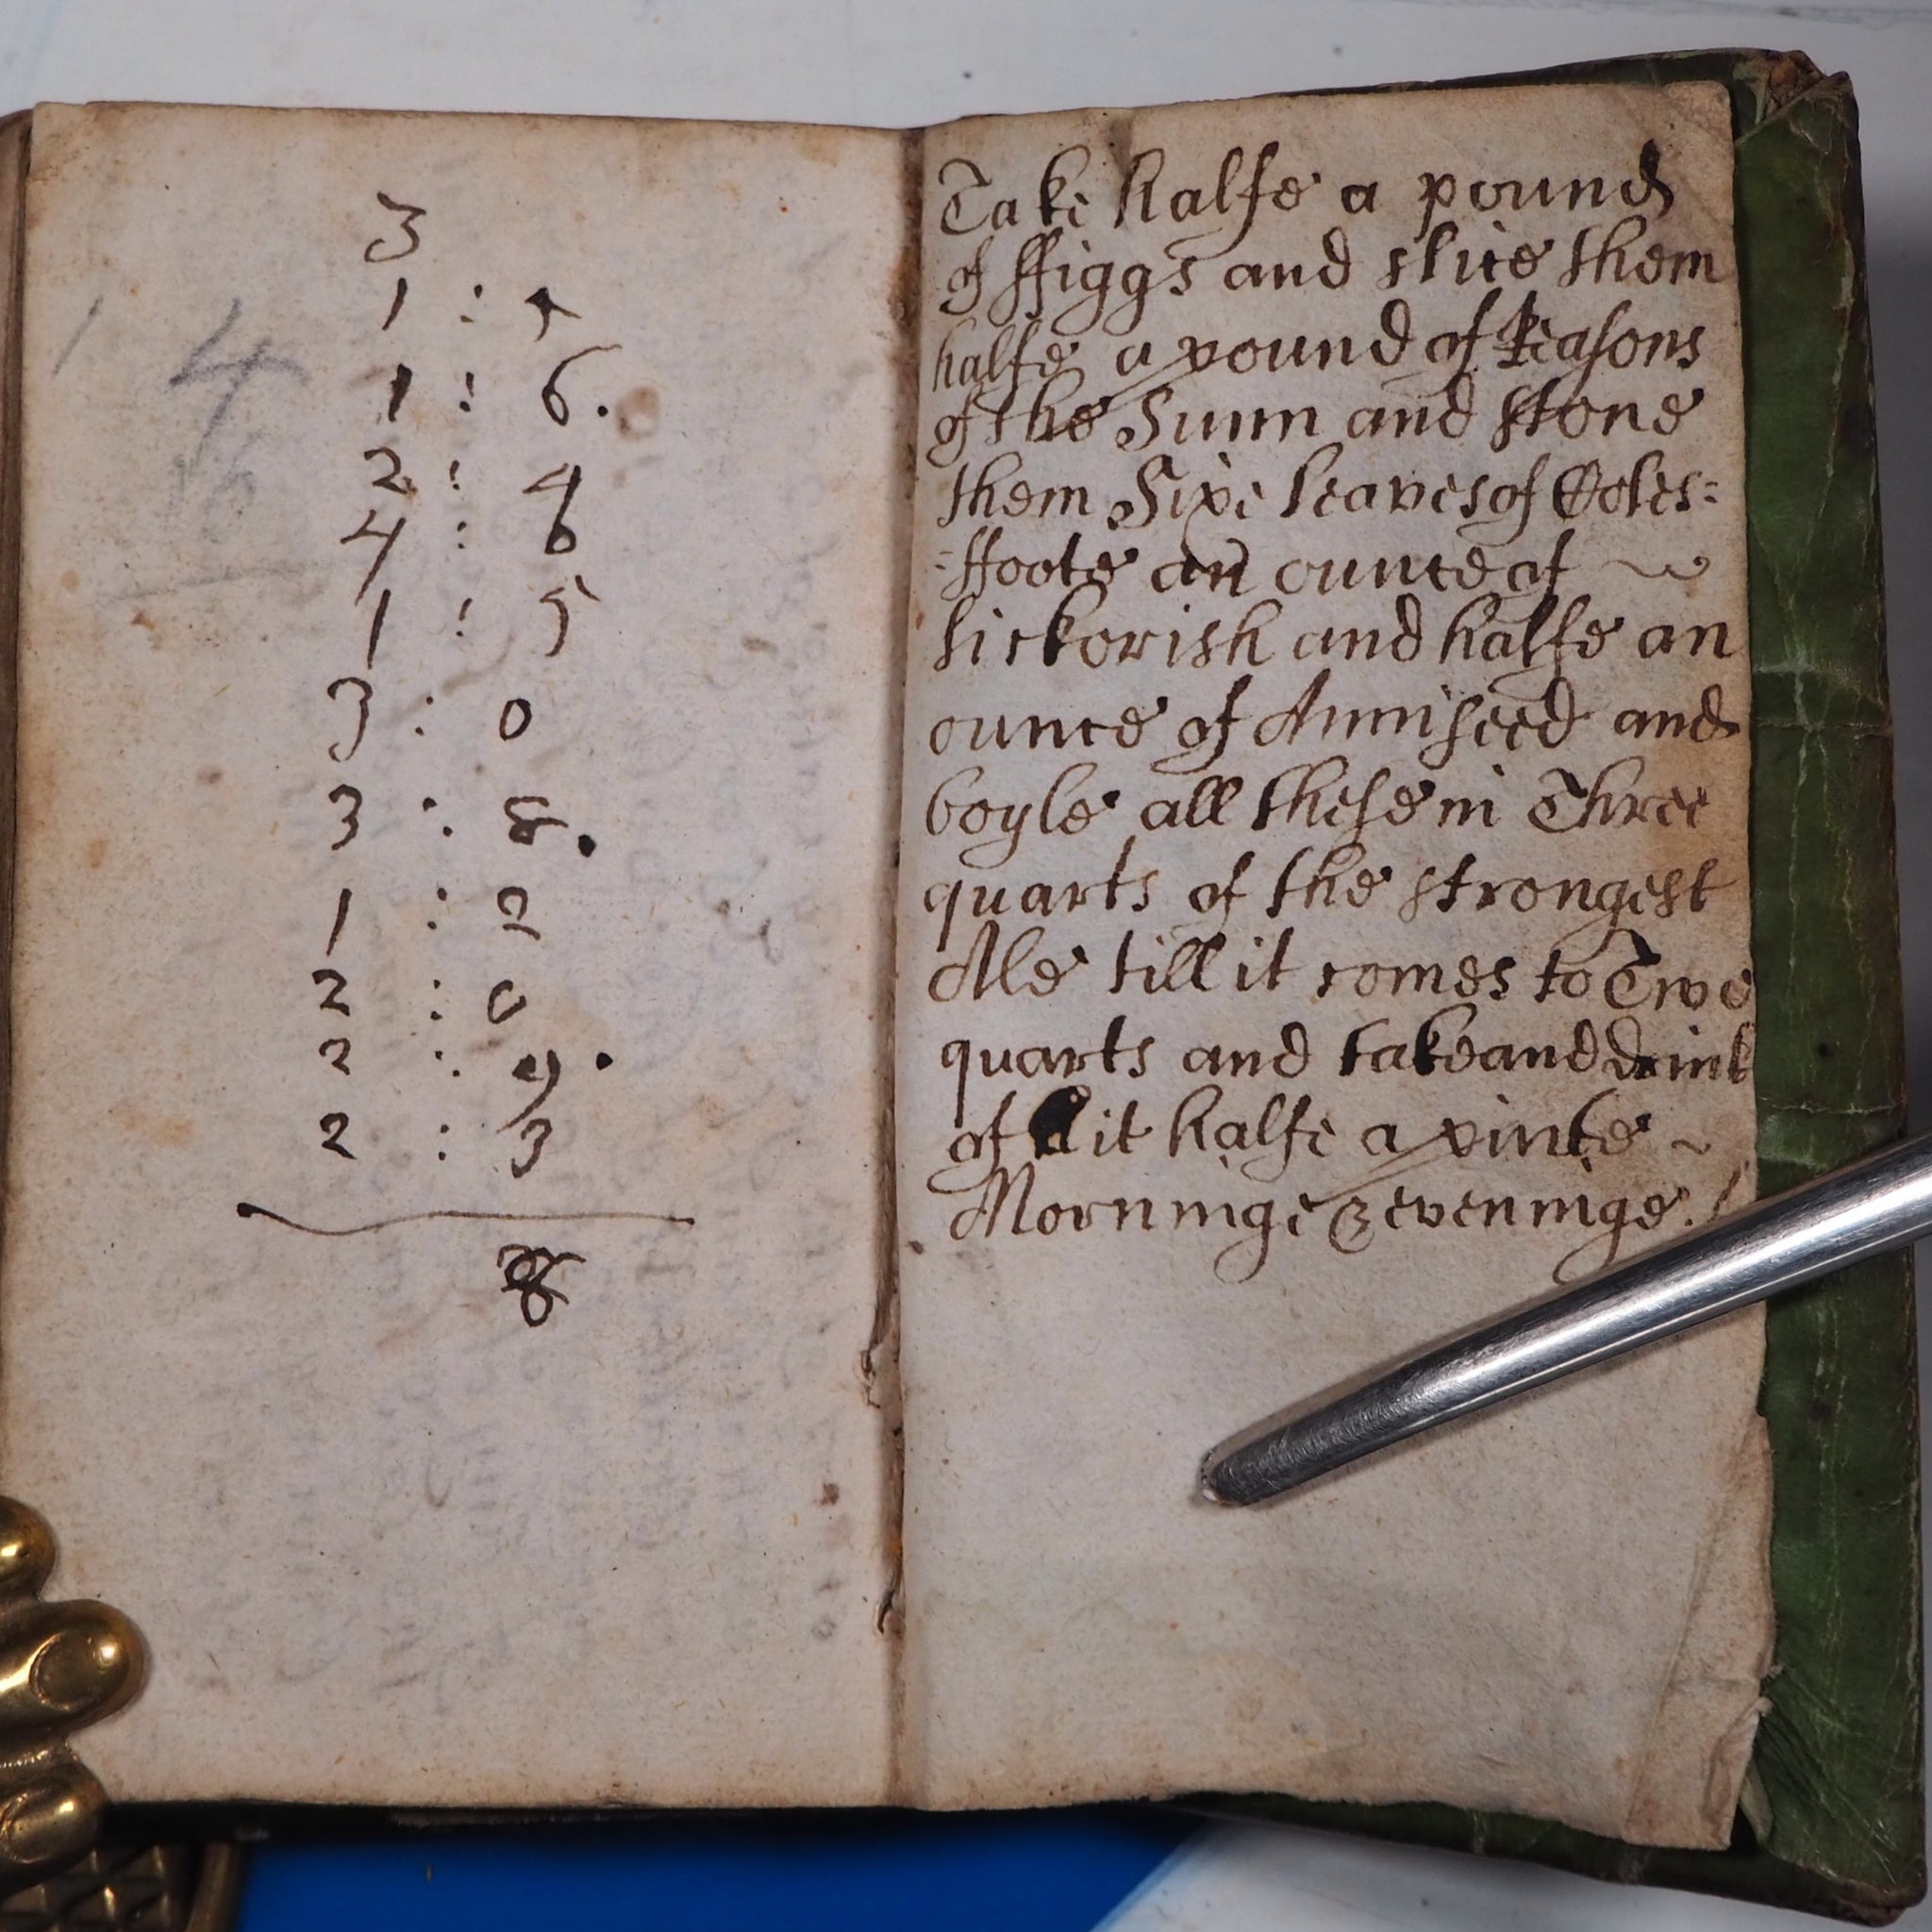 3
1 :
1 : 6.
2 : 4
4 : 6
1 : 5
3 : 0
3 : 8.
1 : 2
2 : 0
2 : 9.
2 : 3
8
4
16
Take halfe a pound
of ffiggs and slice them
halfe a pound of Reasons
of the Sunn and stone
them Sixe leaves of Coles=
=ffoote an ounce of
lickorish and halfe an
ounce of Anniseed and
boyle all these in Three
quarts of the strongest
Ale till it comes to Two
quarts and take and drink
of it halfe a pinte
Morninge & eveninge.